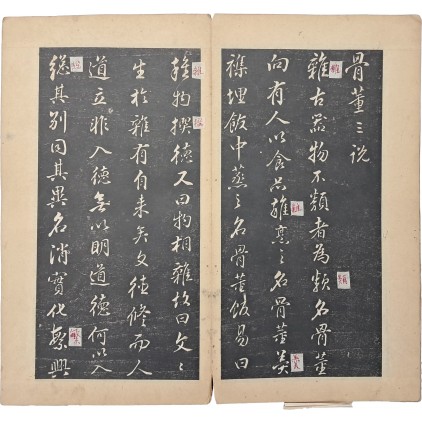 骨董三説
雜古器物不類者為類名骨董
向有人以食品雜烹之名骨董羹
襍埋飯中蒸之名骨董飯易曰
雜物撰德又曰物相雜故曰文〻
生於雜有自来矣文德修而人
道立非入德無以明道德何以入
總其別同其異名消實化繁興